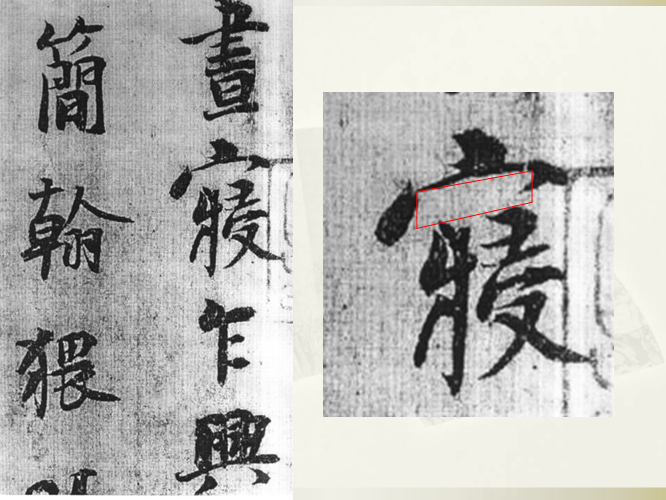 晝寢乍興
簡翰猥
寢